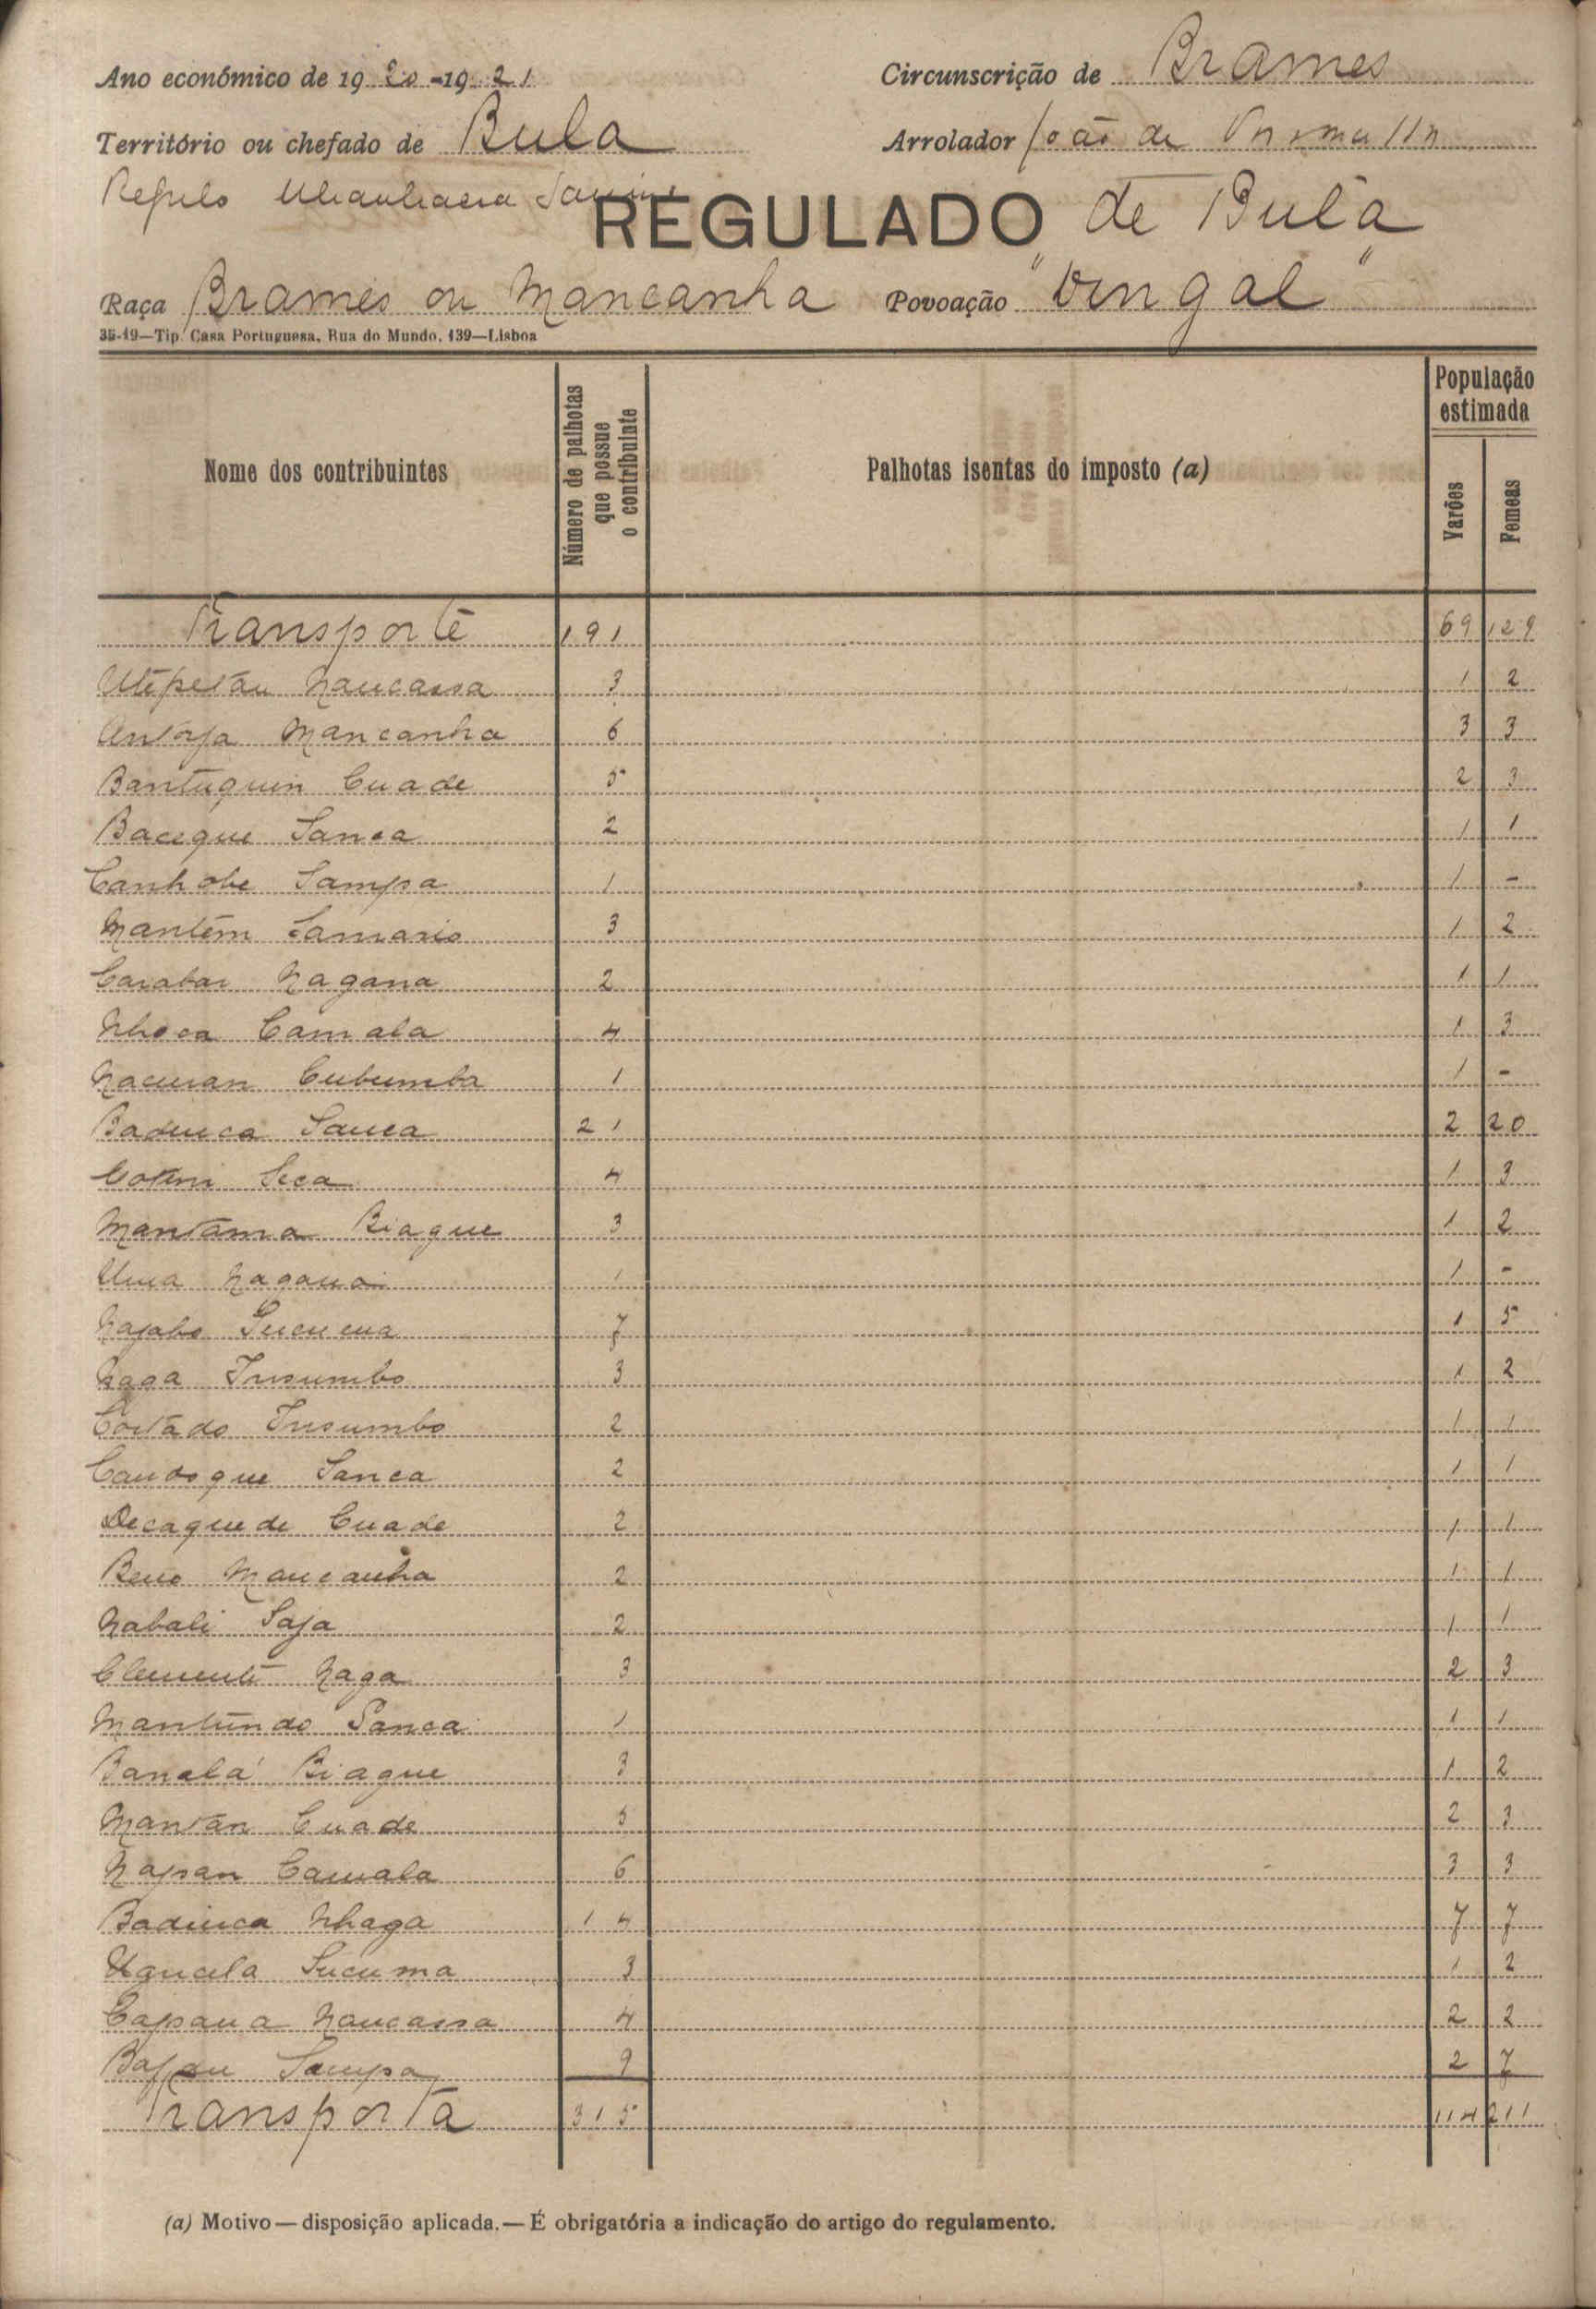 Ano económico de 1920-1921 Circunscrição de Brames
Território ou chefado de Bula Arrolador João de
Regulo
REGULADO de Bula
Raça Brames ou Mancanha Povoação "Vengal"
35-19—Tip. Casa Portuguesa, Rua do Mundo, 139—Lisboa
Nome dos contribuintes Número de palhotas que possue o contribuinte Palhotas isentas do imposto (a) População estimada Varões Femeas
Transporte 191 69 129
Naucassa 3 1 2
Mancanha 6 3 3
Bantuquin Cuade 5 2 3
Baceque Sanca 2 1 1
Canhobe Sampa 1 1 -
Mantem 3 1 2
Carabar Nagana 2 1 1
Nhoca Camala 4 1 3
Nacuran Cubumba 1 1 -
Badinca Sanca 21 2 20
Seca 4 1 3
Mantama Biague 3 1 2
Uma Nagana 1 1 -
Najabo Sucuma 7 1 5
Naga Insumbo 3 1 2
Costado Insumbo 2 1 1
Candoque Sanca 2 1 1
Decaquede Cuade 2 1 1
Mancanha 2 1 1
Nabali Saja 2 1 1
Clemente Naga 3 2 3
Mantundo Sanca 1 1 1
Banalá Biague 3 1 2
Mantan Cuade 5 2 3
Napsan Camala 6 3 3
Badinca Nhaga 14 7 7
Sucuma 3 1 2
Capsana Naucassa 4 2 2
Sampa 9 2 7
Transporta 315 114 211
(a) Motivo—disposição aplicada.—É obrigatória a indicação do artigo do regulamento.